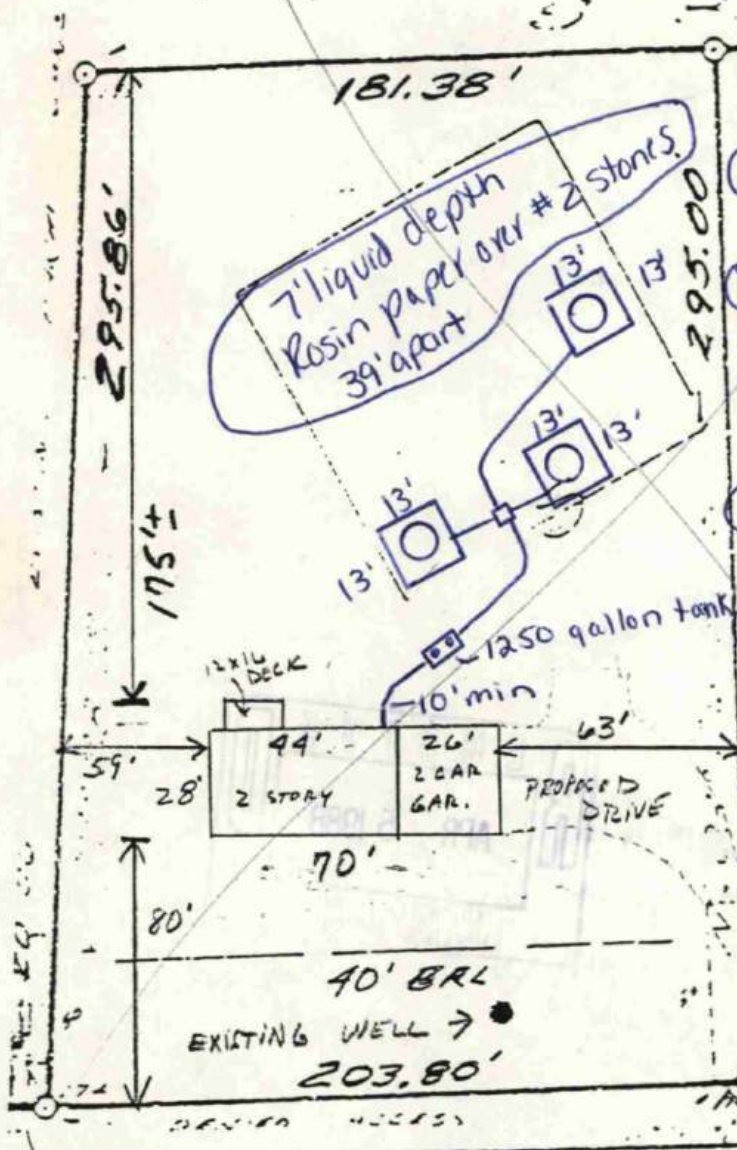 181.38'
295.86'
295.00
7' liquid depth
Rosin paper over #2 stones
39' apart
13'
13'
13'
13'
13'
13'
175'±
1250 gallon tank
10' min
12x16
DECK
44'
26'
63'
59'
28'
2 STORY
2 CAR
GAR.
PROPOSED
DRIVE
APR 1988
70'
80'
40' BRL
EXISTING WELL →
203.80'
ACCESS